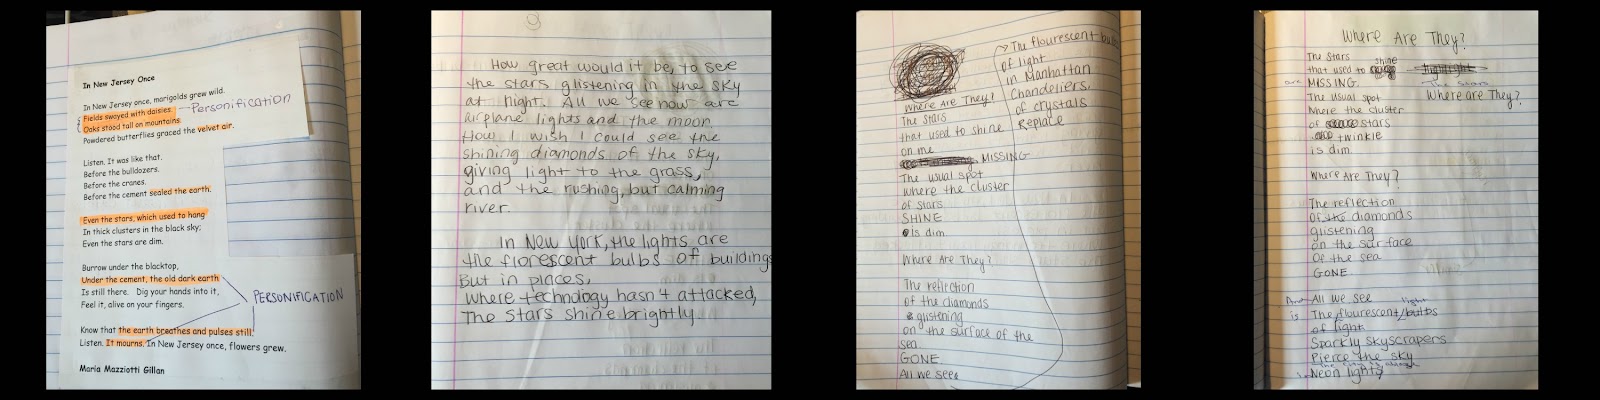 In New Jersey Once
In New Jersey once, marigolds grew wild.
Fields swayed with daisies. Personification
Oaks stood tall on mountains.
Powdered butterflies graced the velvet air.
Listen. It was like that.
Before the bulldozers.
Before the cranes.
Before the cement sealed the earth.
Even the stars, which used to hang
In thick clusters in the black sky;
Even the stars are dim.
Burrow under the blacktop,
Under the cement, the old dark earth
Is still there. Dig your hands into it,
Feel it, alive on your fingers.
PERSONIFICATION
Know that the earth breathes and pulses still.
Listen. It mourns. In New Jersey once, flowers grew.
Maria Mazziotti Gillan
How great would it be, to see
the stars glistening in the sky
at night. All we see now are
airplane lights and the moon.
How I wish I could see the
shining diamonds of the sky,
giving light to the grass,
and the rushing, but calming
river.
In New York, the lights are
the florescent bulbs of buildings
But in places,
where technology hasn't attacked,
The stars shine brightly.
Where Are They?
The stars
that used to shine
on me
MISSING
The usual spot
where the cluster
of stars
SHINE
Is dim
Where Are They?
The reflction
of the diamonds
glistening
on the surface of the
sea
GONE
All we see
The flourescent bulbs
of light
in Manhattan
Chandeliers,
of crystals
Replace
Where Are They?
The Stars
that used to shine
are MISSING
The usual spot
Where the cluster
of stars
twinkle
is dim
Where are They?
Where Are They?
The reflection
Of the diamonds
glistening
on the surface
Of the sea
GONE
All we see
is The flourescent light bulbs
of light
Sparkly skyscrapers
Pierce the sky
Neon lights